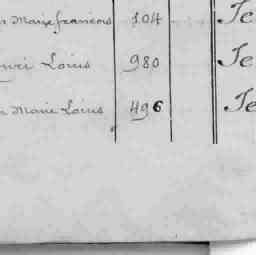 Marie francois 104 Je
Louis 980 Je
Marie Louis 496 Je